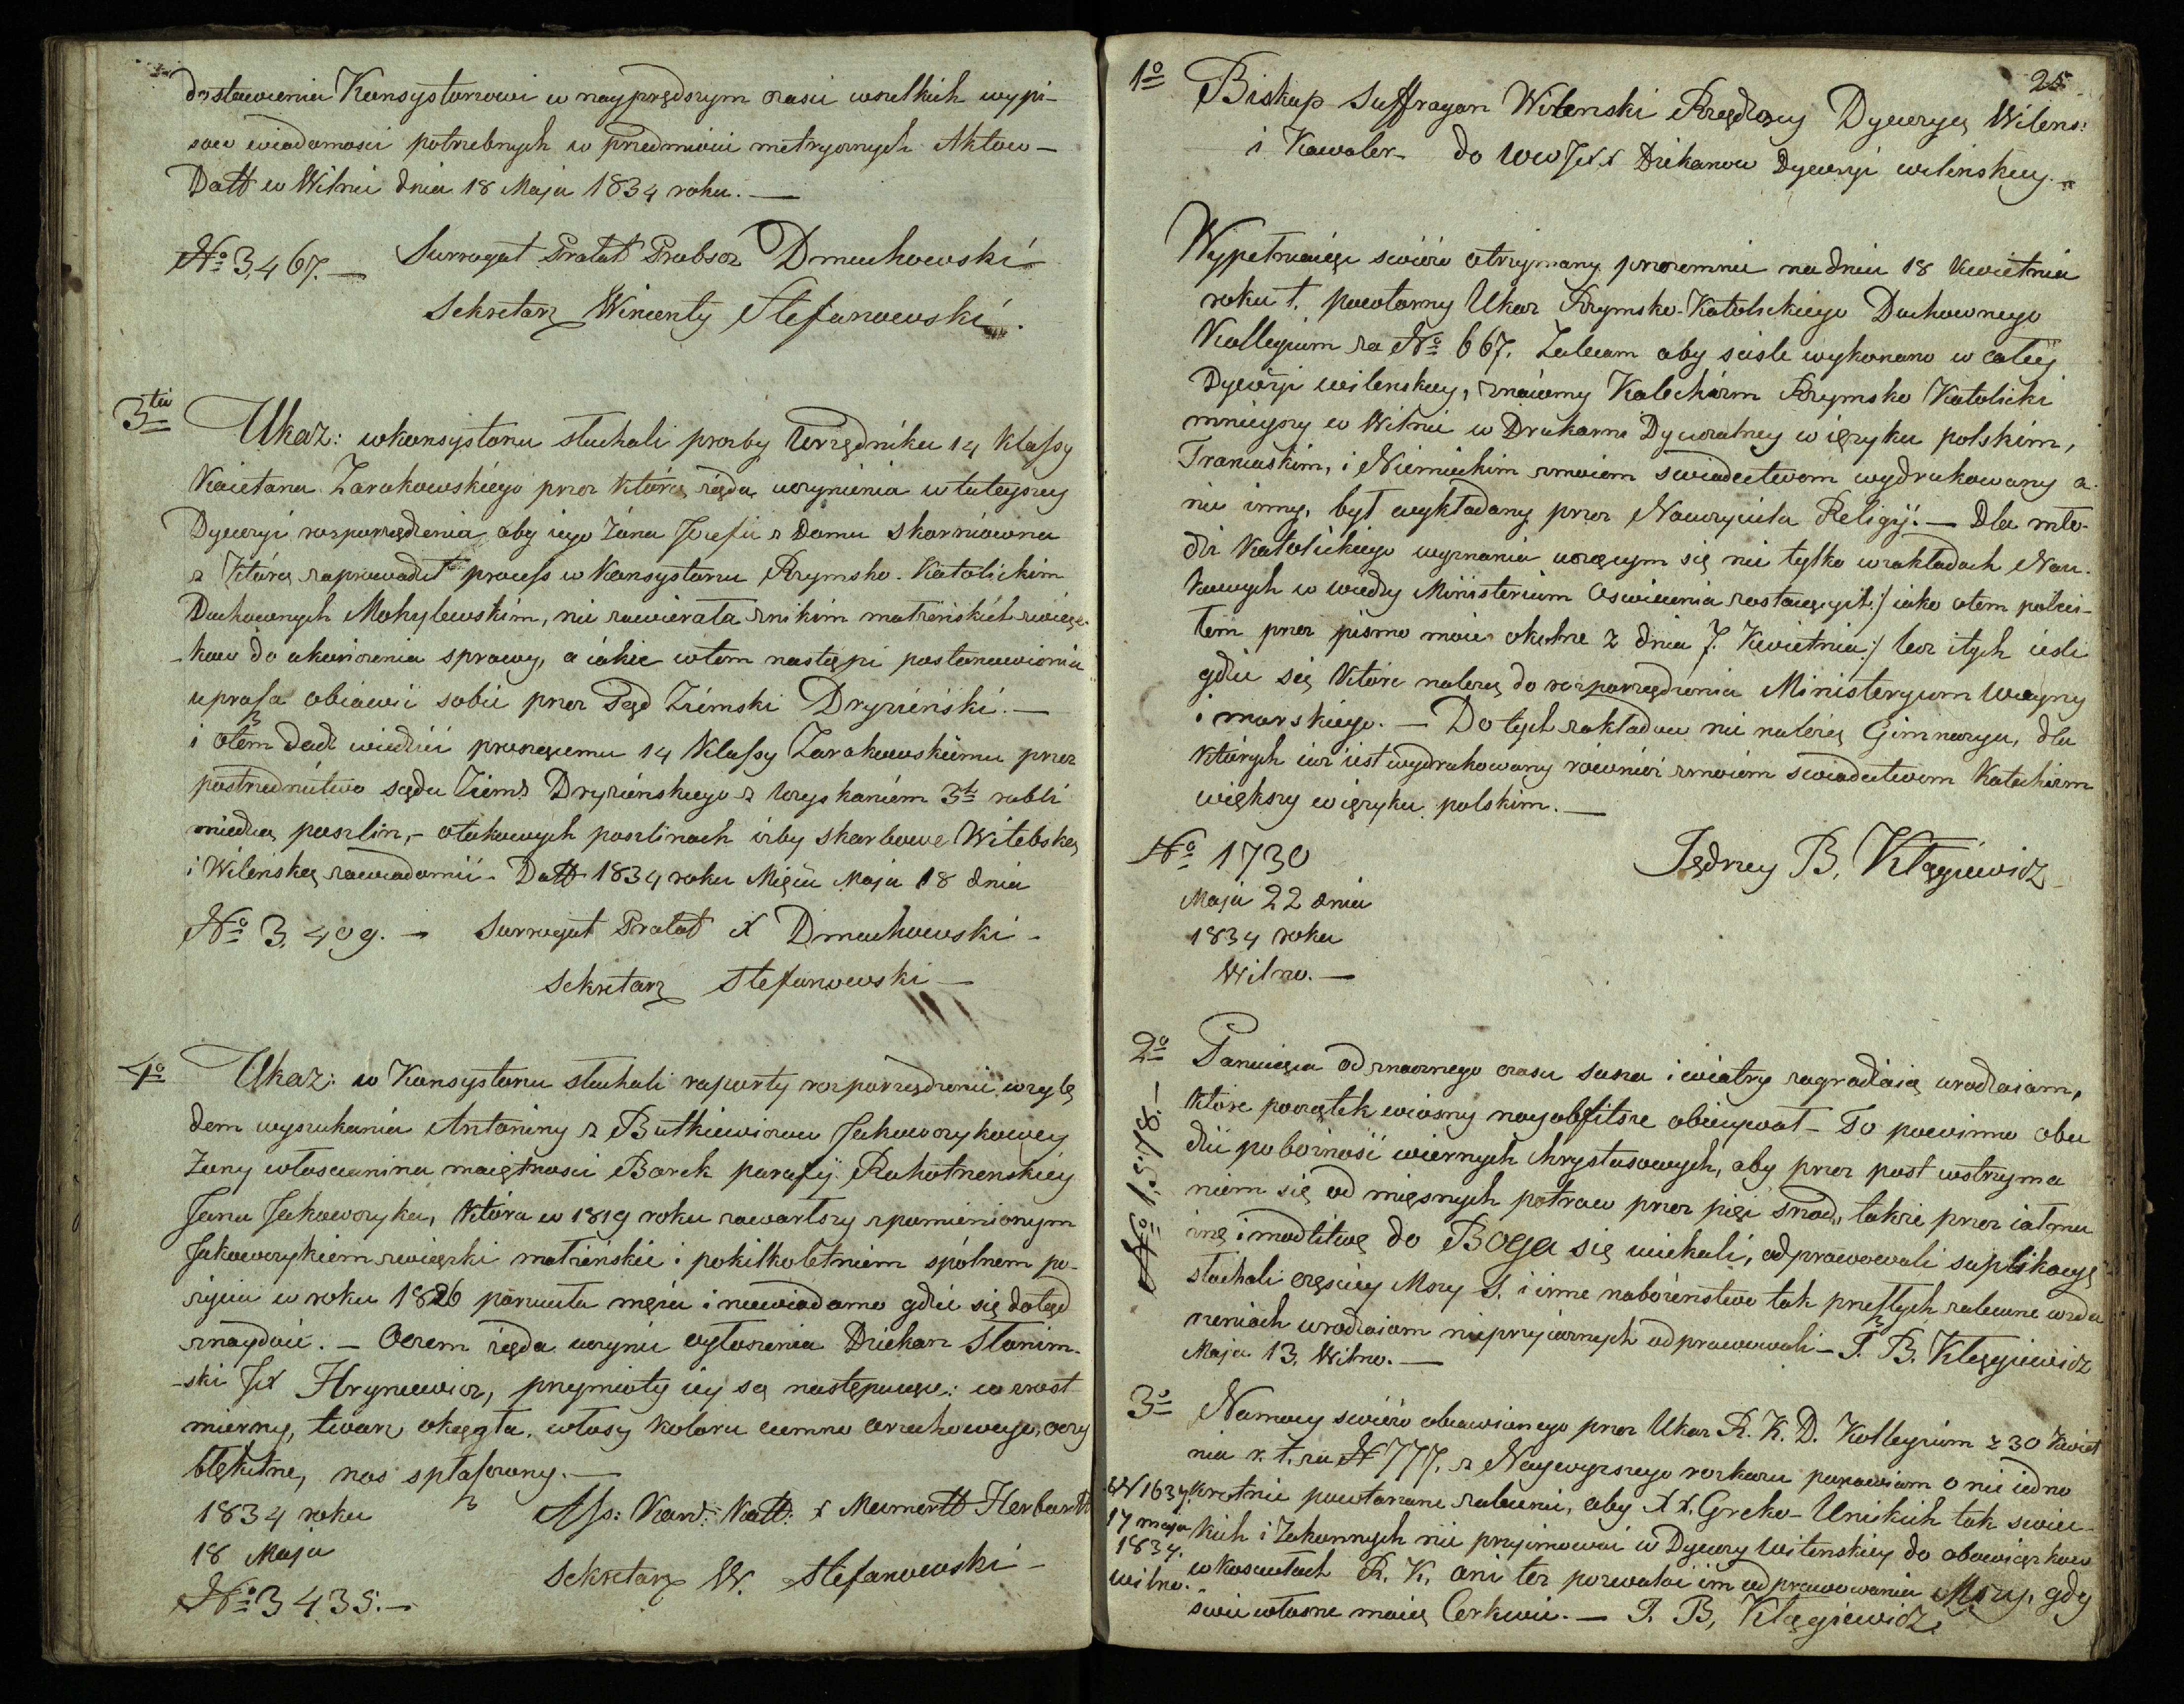 dostawienia Konsystorzowi w nayprędszym czasie wszelkich wypi-
sów wiadomości potrzebnych w przedmiocie metrycznych Aktow —
Datt w Wilnie dnia 18 Maja 1834 roku. —
No 3,467. — Surrogat Prałat Probosz Dmuchowski
Sekretarz Wincenty Stefanowski.
3tio Ukaz: w konsystorzu słuchali prozby Urzędnika 14 Klassy
Kaietana Zarakowskiego przez którą żąda uczynienia w tuteyszey
Dyecezyi rozporządzenia aby iego Żona Jozefa z Domu Skarzniowna
z którą zaprowadził process w Konsystorzu Rzymsko-Katolickim
Duchownych Mohylewskim, nie zawierała z nikim małżeńskich związ-
kow do ukończenia sprawy, a iakie w tem nastąpi postanowienie
uprasza obiawić sobie przez Sąd Ziemski Dryzieński. —
i otem dadź wiedzieć proszącemu 14 Klassy Zarakowskiemu przez
pośrzednictwo sądu Ziems: Dryzieńskiego z Uzyskaniem 3ch rubli
miedzią poszlin, — o takowych poszlinach izby Skarbowe Witebską
i Wileńską zawiadomić. Datt 1834 roku Mięca Maja 18 dnia
No 3,409. — Surrogat Prałat X Dmuchowski —
Sekretarz Stefanowski —
4o Ukaz: w Konsystorzu słuchali raporty rozporządzenie wzglę
dem wyszukania Antoniny z Butkiewiczow Jakowczykowey
Żony włościanina maiętności Borek parafij Rohotneńskiey
Jana Jakowczyka, która w 1819 roku zawarłszy z pomienionym
Jakowczykiem związki małżeńskie i po kilkoletniem spólnem po-
życiu w roku 1826 porzuciła męża i niewiadomo gdzie się dotąd
znayduie. — Oczem żąda uczynić ogłoszenia Dziekan Słonim-
ski JX Hryncewicz, przymioty iey są następuiące: wzrost
mierny, twarz okrągła, włosy koloru ciemno orzechowego, oczy
błękitne, nos spłaszczony. —
1834 roku Ass: Kan: Katt: X Mamertt Herburtt
18 Maja
Sekretarz W. Stefanowski —
No 3435. —
25
1o Biskup Suffragan Wilenski Rządzący Dyecezyą Wilens:
i Kawaler — do WWJXX Dziekanow Dyecezyi wilenskiey. —
Wypełniaiąc swieżo otrzymany przezemnie na dniu 18 Kwietnia
roku t. powtorny Ukaz Rzymsko-Katolickiego Duchownego
Kollegium za No 667. Zalecam aby ściśle wykonano w całey
Dyecezyi wilenskiey, znaiomy Katechizm Rzymsko Katolicki
mnieyszy w Wilnie w Drukarni Dyecezalney w ięzyku polskim,
Francuskim, i Niemieckim z moiem swiadectwem wydrukowany a
nie inny, był wykładany przez Nauczyciela Religij. — Dla mło-
dzi Katolickiego wyznania uczącym się nie tylko w zakładach Nau-
kowych w wiedzy Ministerium Oswiecenia zostaiących :/ iako otem poleci-
łem przez pismo moie okolne z dnia 7. Kwietnia :/ lecz i tych iesli
gdzie się które należą do rozporządzenia Ministeryum Woyny
i morskiego. — Do tych zakładow nie należą Gimnazya, dla
których iuż iest wydrukowany rownież z moiem swiadectwem Katechizm
większy w ięzyku polskim. —
No 1730 Jędrzey B. Kłągiewicz
Maja 22 dnia
1834 roku
Wilno. —
2o Panuiąca od znacznego czasu susza i wiatry zagrażaią urodzaiom,
które początek wiosny nayobfitsze obiecywał — To powinno obu
dzić pobożność wiernych Chrystusowych, aby przez post wstrzyma
niem się od mięsnych potraw przez pięć srzod, także przez iałmu
żnę i modlitwę do BOGA się uciekali, odprawowali suplikacyę
słuchali częściey Mszy S. i inne nabożeństwo tak przeszłych zalecone wzda
rzeniach urodzaiom nieprzyiaznych odprawowali — J. B. Kłągiewicz
Maja 13. Wilno. —
No 1578. —
3o Na mocy swieżo obiawionego przez Ukaz R. K. D. Kollegium z 30 Kwiet
nia r. t. za N 777. z Naywyzszego rozkazu ponawiam o nie iedno
krotnie powtarzane zalecenie, aby XX. Greko-Unickich tak swiec-
kich i Zakonnych nie przyimować w Dyecezyi wilenskiey do obowiązkow
w kosciołach R. K. ani też pozwalać im odprawowania Mszy, gdy
swie własne maią Cerkwie. — J. B. Kłągiewicz
N 1634.
17 maja
1834.
wilno.